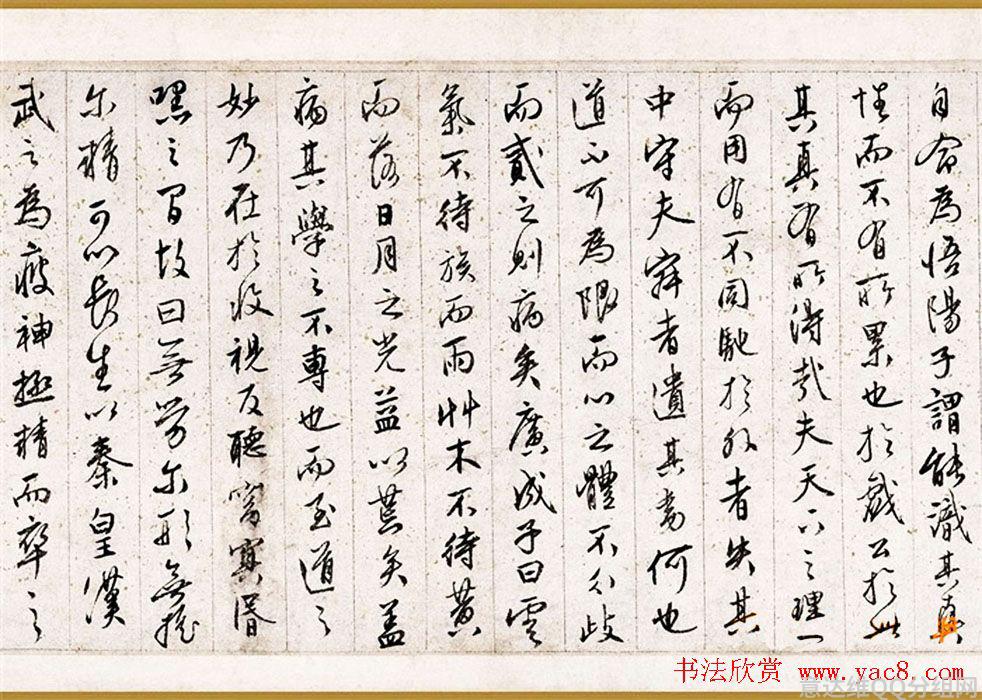 自命為悟陽子謂能識其真
性而不有所累也於戲公於此
其真有所得哉夫天下之理一
而用有不同馳於外者失其
中守夫者遺其何也
道不可為限而心之體不歧
而貳之則病矣廣成子曰雲
氣不待族而雨艸木不待黃
而落日月之光益以荒矣蓋
病其學之不專也而至道之
妙乃在於收視反聽窅冥昏
嘿之間故曰無勞尔形無搖
尔精可以長生以秦皇漢
武之為疲神極精而卒之
书法欣赏 www.yac8.com
意达维QQ分组网